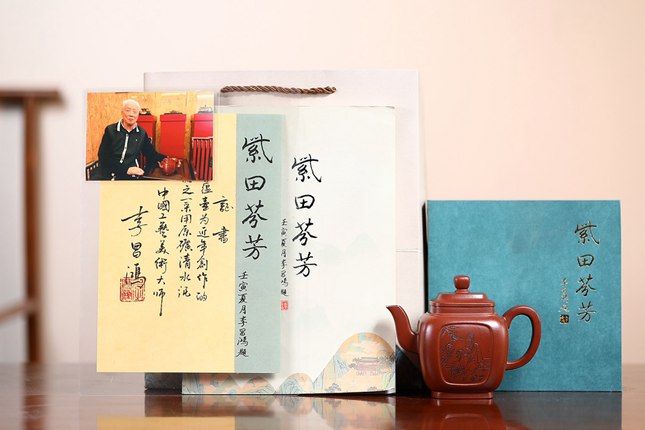 紫田芬芳
壬寅夏月李昌鴻題
証書
壺为近年創作的
之一采用原礦清水泥
中國工藝美術大師
李昌鴻
紫田芬芳
壬寅夏月李昌鴻題
紫田芬芳